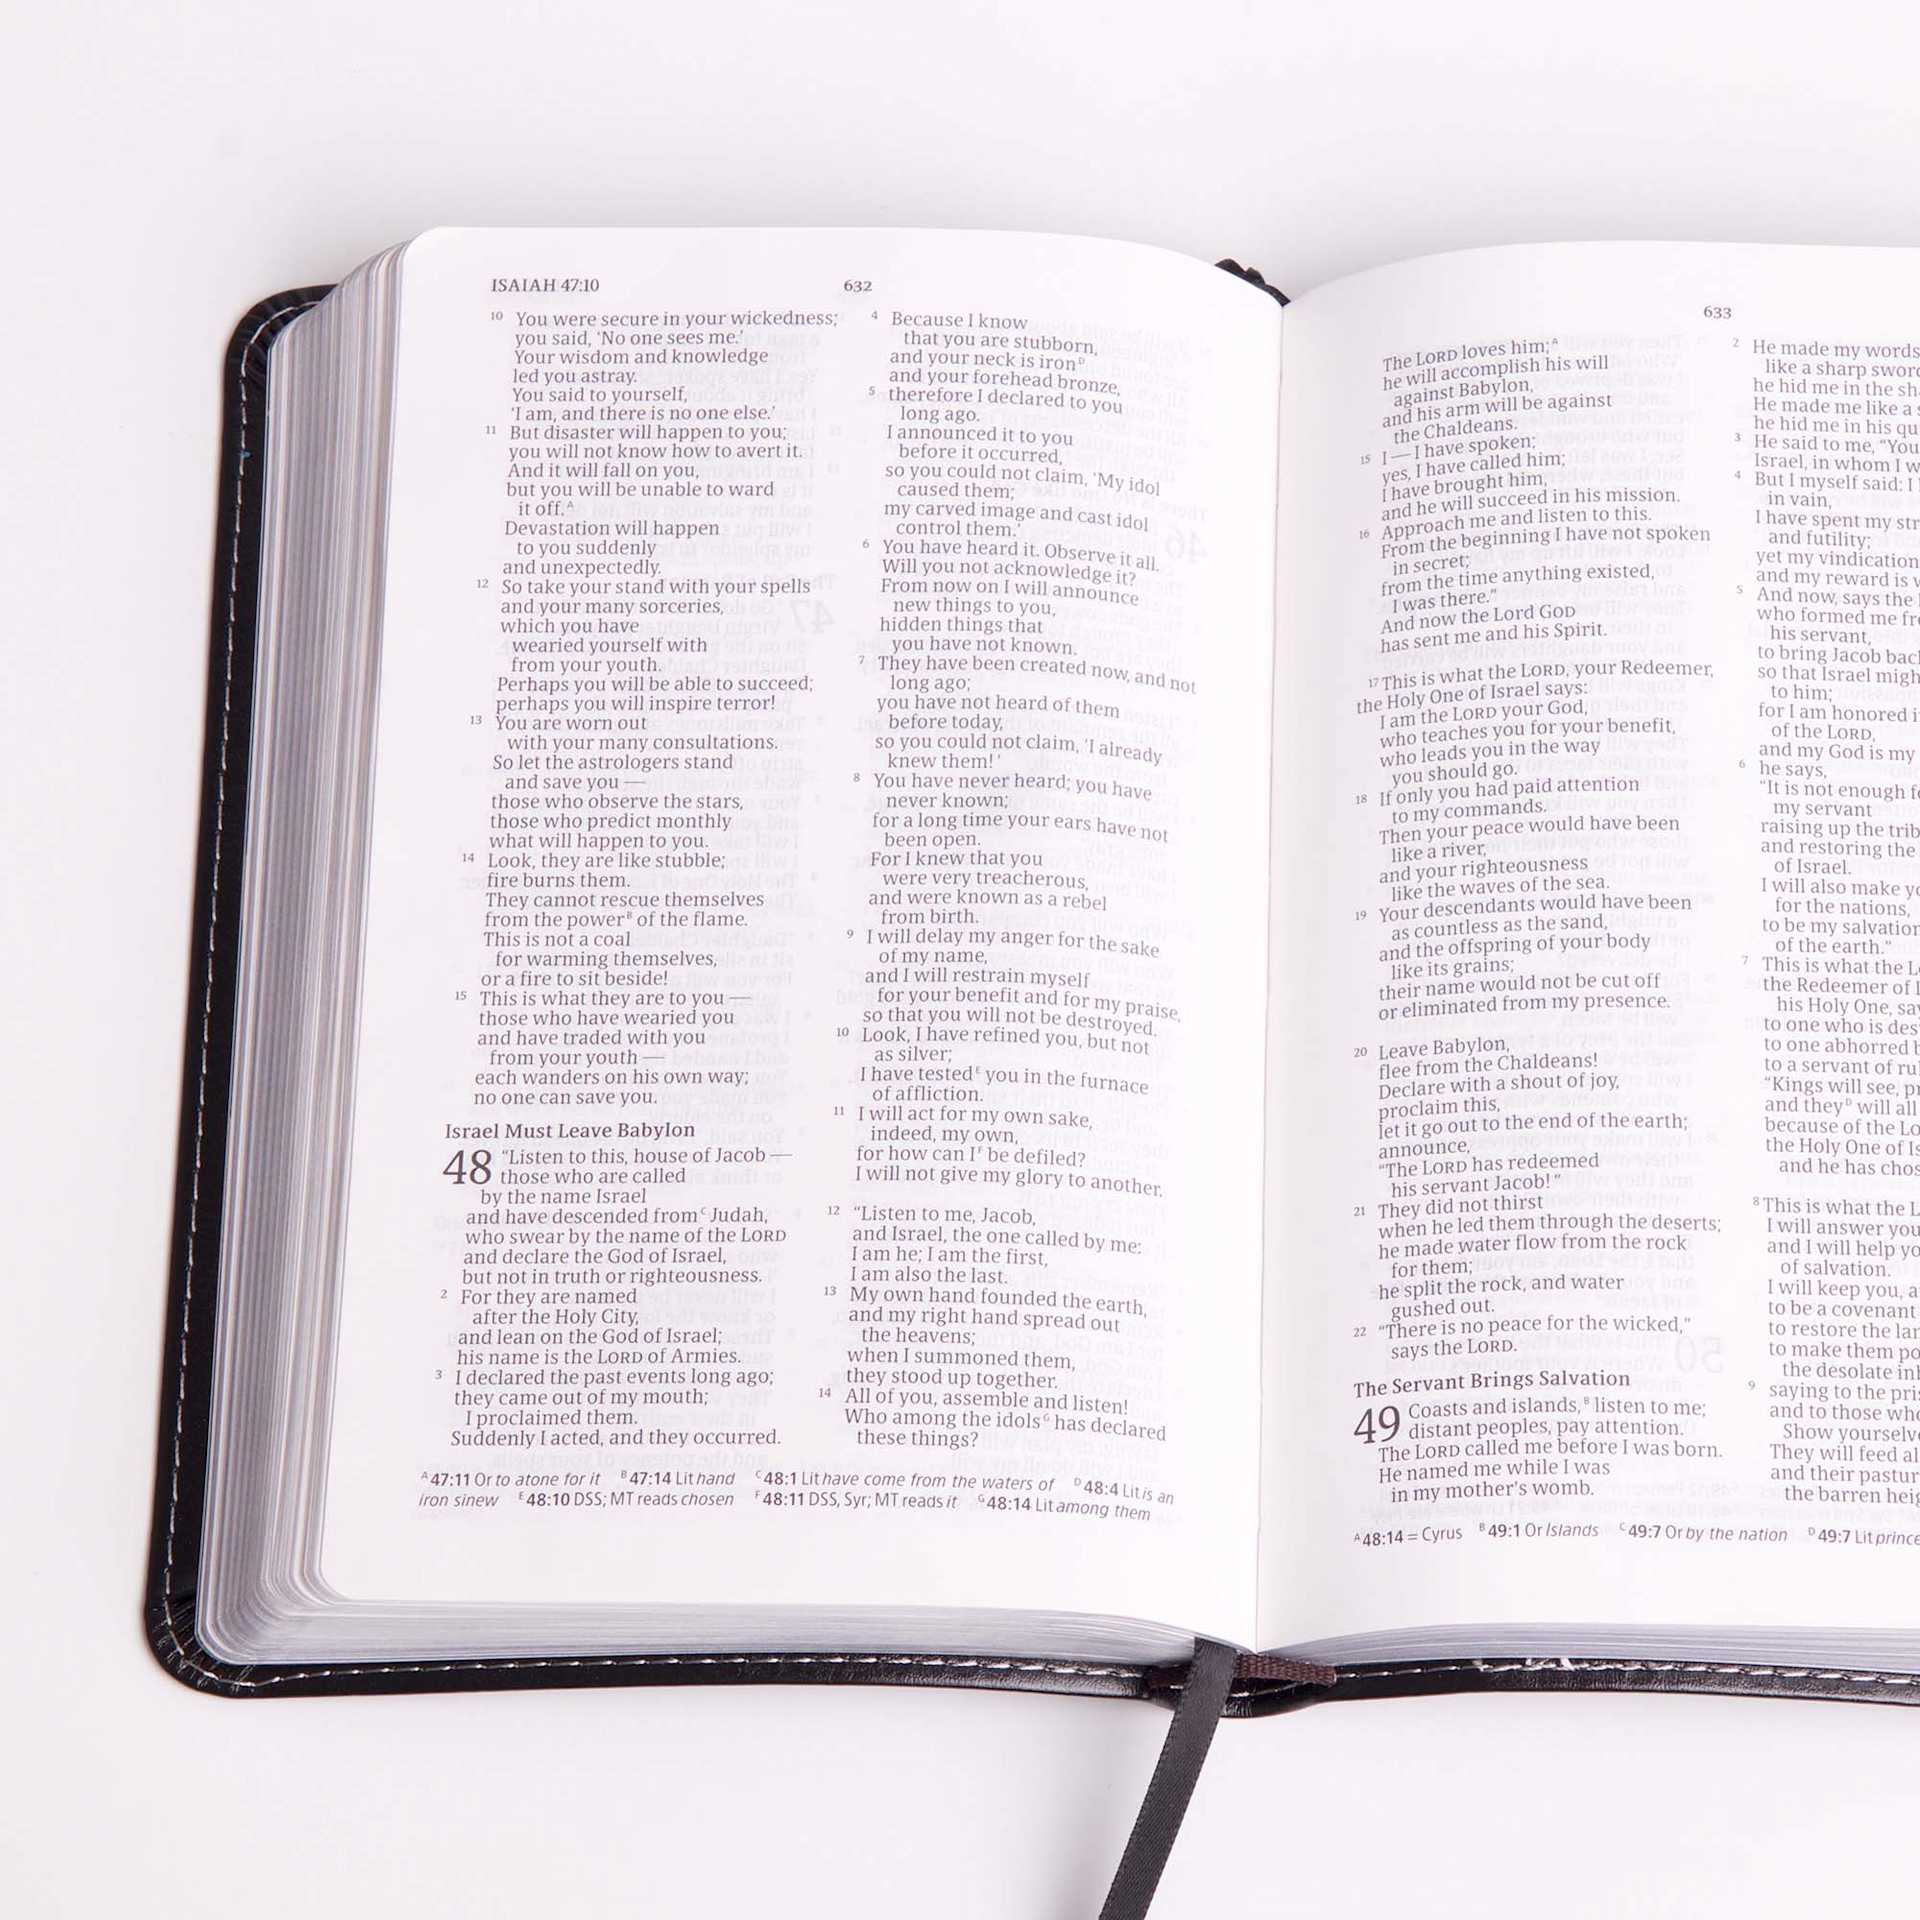 ISAIAH 47:10
632
10 You were secure in your wickedness;
you said, ‘No one sees me.’
Your wisdom and knowledge
led you astray.
You said to yourself,
‘I am, and there is no one else.’
11 But disaster will happen to you;
you will not know how to avert it.
And it will fall on you,
but you will be unable to ward
it off.A
Devastation will happen
to you suddenly
and unexpectedly.
12 So take your stand with your spells
and your many sorceries,
which you have
wearied yourself with
from your youth.
Perhaps you will be able to succeed;
perhaps you will inspire terror!
13 You are worn out
with your many consultations.
So let the astrologers stand
and save you —
those who observe the stars,
those who predict monthly
what will happen to you.
14 Look, they are like stubble;
fire burns them.
They cannot rescue themselves
from the powerB of the flame.
This is not a coal
for warming themselves,
or a fire to sit beside!
15 This is what they are to you —
those who have wearied you
and have traded with you
from your youth —
each wanders on his own way;
no one can save you.
Israel Must Leave Babylon
48 “Listen to this, house of Jacob —
those who are called
by the name Israel
and have descended fromC Judah,
who swear by the name of the LORD
and declare the God of Israel,
but not in truth or righteousness.
2 For they are named
after the Holy City,
and lean on the God of Israel;
his name is the LORD of Armies.
3 I declared the past events long ago;
they came out of my mouth;
I proclaimed them.
Suddenly I acted, and they occurred.
4 Because I know
that you are stubborn,
and your neck is ironD
and your forehead bronze,
5 therefore I declared to you
long ago.
I announced it to you
before it occurred,
so you could not claim, ‘My idol
caused them;
my carved image and cast idol
control them.’
6 You have heard it. Observe it all.
Will you not acknowledge it?
From now on I will announce
new things to you,
hidden things that
you have not known.
7 They have been created now, and not
long ago;
you have not heard of them
before today,
so you could not claim, ‘I already
knew them!’
8 You have never heard; you have
never known;
for a long time your ears have not
been open.
For I knew that you
were very treacherous,
and were known as a rebel
from birth.
9 I will delay my anger for the sake
of my name,
and I will restrain myself
for your benefit and for my praise,
so that you will not be destroyed.
10 Look, I have refined you, but not
as silver;
I have testedE you in the furnace
of affliction.
11 I will act for my own sake,
indeed, my own,
for how can IF be defiled?
I will not give my glory to another.
12 “Listen to me, Jacob,
and Israel, the one called by me:
I am he; I am the first,
I am also the last.
13 My own hand founded the earth,
and my right hand spread out
the heavens;
when I summoned them,
they stood up together.
14 All of you, assemble and listen!
Who among the idolsG has declared
these things?
A 47:11 Or to atone for it B 47:14 Lit hand C 48:1 Lit have come from the waters of D 48:4 Lit is an
iron sinew E 48:10 DSS; MT reads chosen F 48:11 DSS, Syr; MT reads it G 48:14 Lit among them
633
The LORD loves him;A
he will accomplish his will
against Babylon,
and his arm will be against
the Chaldeans.
15 I — I have spoken;
yes, I have called him;
I have brought him,
and he will succeed in his mission.
16 Approach me and listen to this.
From the beginning I have not spoken
in secret;
from the time anything existed,
I was there.”
And now the Lord GOD
has sent me and his Spirit.
17 This is what the LORD, your Redeemer,
the Holy One of Israel says:
I am the LORD your God,
who teaches you for your benefit,
who leads you in the way
you should go.
18 If only you had paid attention
to my commands.
Then your peace would have been
like a river,
and your righteousness
like the waves of the sea.
19 Your descendants would have been
as countless as the sand,
and the offspring of your body
like its grains;
their name would not be cut off
or eliminated from my presence.
20 Leave Babylon,
flee from the Chaldeans!
Declare with a shout of joy,
proclaim this,
let it go out to the end of the earth;
announce,
“The LORD has redeemed
his servant Jacob!”
21 They did not thirst
when he led them through the deserts;
he made water flow from the rock
for them;
he split the rock, and water
gushed out.
22 “There is no peace for the wicked,”
says the LORD.
The Servant Brings Salvation
49 Coasts and islands,B listen to me;
distant peoples, pay attention.
The LORD called me before I was born.
He named me while I was
in my mother’s womb.
2 He made my words
like a sharp
he hid me in the
He made me like a
he hid me in his
3 He said to me, “You
Israel, in whom I
4 But I myself said: I
in vain,
I have spent my
and futility;
yet my vindication
and my reward is
5 And now, says the
who formed me
his servant,
to bring Jacob
so that Israel
to him;
for I am honored
of the LORD,
and my God is my
6 he says,
“It is not enough
my servant
raising up the
and restoring the
of Israel.
I will also make
for the nations,
to be my salvation
of the earth.”
7 This is what the
the Redeemer of
his Holy One,
to one who is
to one abhorred
to a servant of
“Kings will see,
and theyD will all
because of the
the Holy One of
and he has
8 This is what the
I will answer you
and I will help
of salvation.
I will keep you,
to be a covenant
to restore the
to make them
the desolate
9 saying to the
and to those
Show
They will feed
and their
the barren
A 48:14 = Cyrus B 49:1 Or Islands C 49:7 Or by the nation D 49:7 Lit